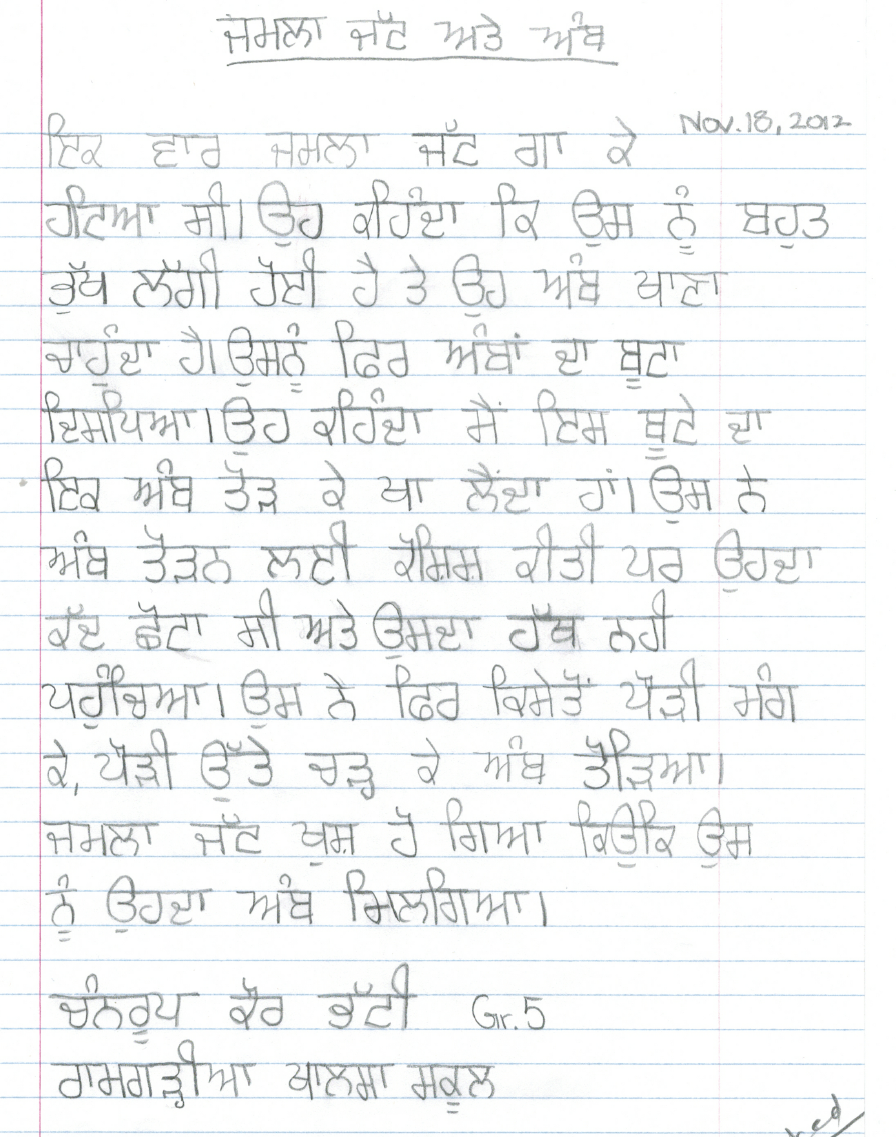 ਜਮਲਾ ਜੱਟ ਅਤੇ ਅੰਬ
Nov. 18, 2012
ਇਕ ਵਾਰ ਜਮਲਾ ਜੱਟ ਗਾ ਕੇ
ਹਟਿਆ ਸੀ। ਉਹ ਕਹਿੰਦਾ ਕਿ ਉਸ ਨੂੰ ਬਹੁਤ
ਭੁੱਖ ਲੱਗੀ ਹੋਈ ਹੈ ਤੇ ਉਹ ਅੰਬ ਖਾਣਾ
ਚਾਹੁੰਦਾ ਹੈ। ਉਸਨੂੰ ਫਿਰ ਅੰਬਾਂ ਦਾ ਬੂਟਾ
ਦਿਸਪਿਆ। ਉਹ ਕਹਿੰਦਾ ਮੈਂ ਇਸ ਬੂਟੇ ਦਾ
ਇਕ ਅੰਬ ਤੋੜ ਕੇ ਖਾ ਲੈਂਦਾ ਹਾਂ। ਉਸ ਨੇ
ਅੰਬ ਤੋੜਨ ਲਈ ਕੋਸ਼ਿਸ਼ ਕੀਤੀ ਪਰ ਉਹਦਾ
ਕੱਦ ਛੋਟਾ ਸੀ ਅਤੇ ਉਸਦਾ ਹੱਥ ਨਹੀ
ਪਹੁੰਚਿਆ। ਉਸ ਨੇ ਫਿਰ ਕਿਸੇਤੋਂ ਪੌੜੀ ਮੰਗ
ਕੇ, ਪੌੜੀ ਉੱਤੇ ਚੜ੍ਹ ਕੇ ਅੰਬ ਤੋੜਿਆ।
ਜਮਲਾ ਜੱਟ ਖੁਸ਼ ਹੋ ਗਿਆ ਕਿਉਂਕਿ ਉਸ
ਨੂੰ ਉਹਦਾ ਅੰਬ ਮਿਲਗਿਆ।
ਚੰਨਰੂਪ ਕੌਰ ਭੱਟੀ Gr. 5
ਰਾਮਗੜ੍ਹੀਆ ਖਾਲਸਾ ਸਕੂਲ